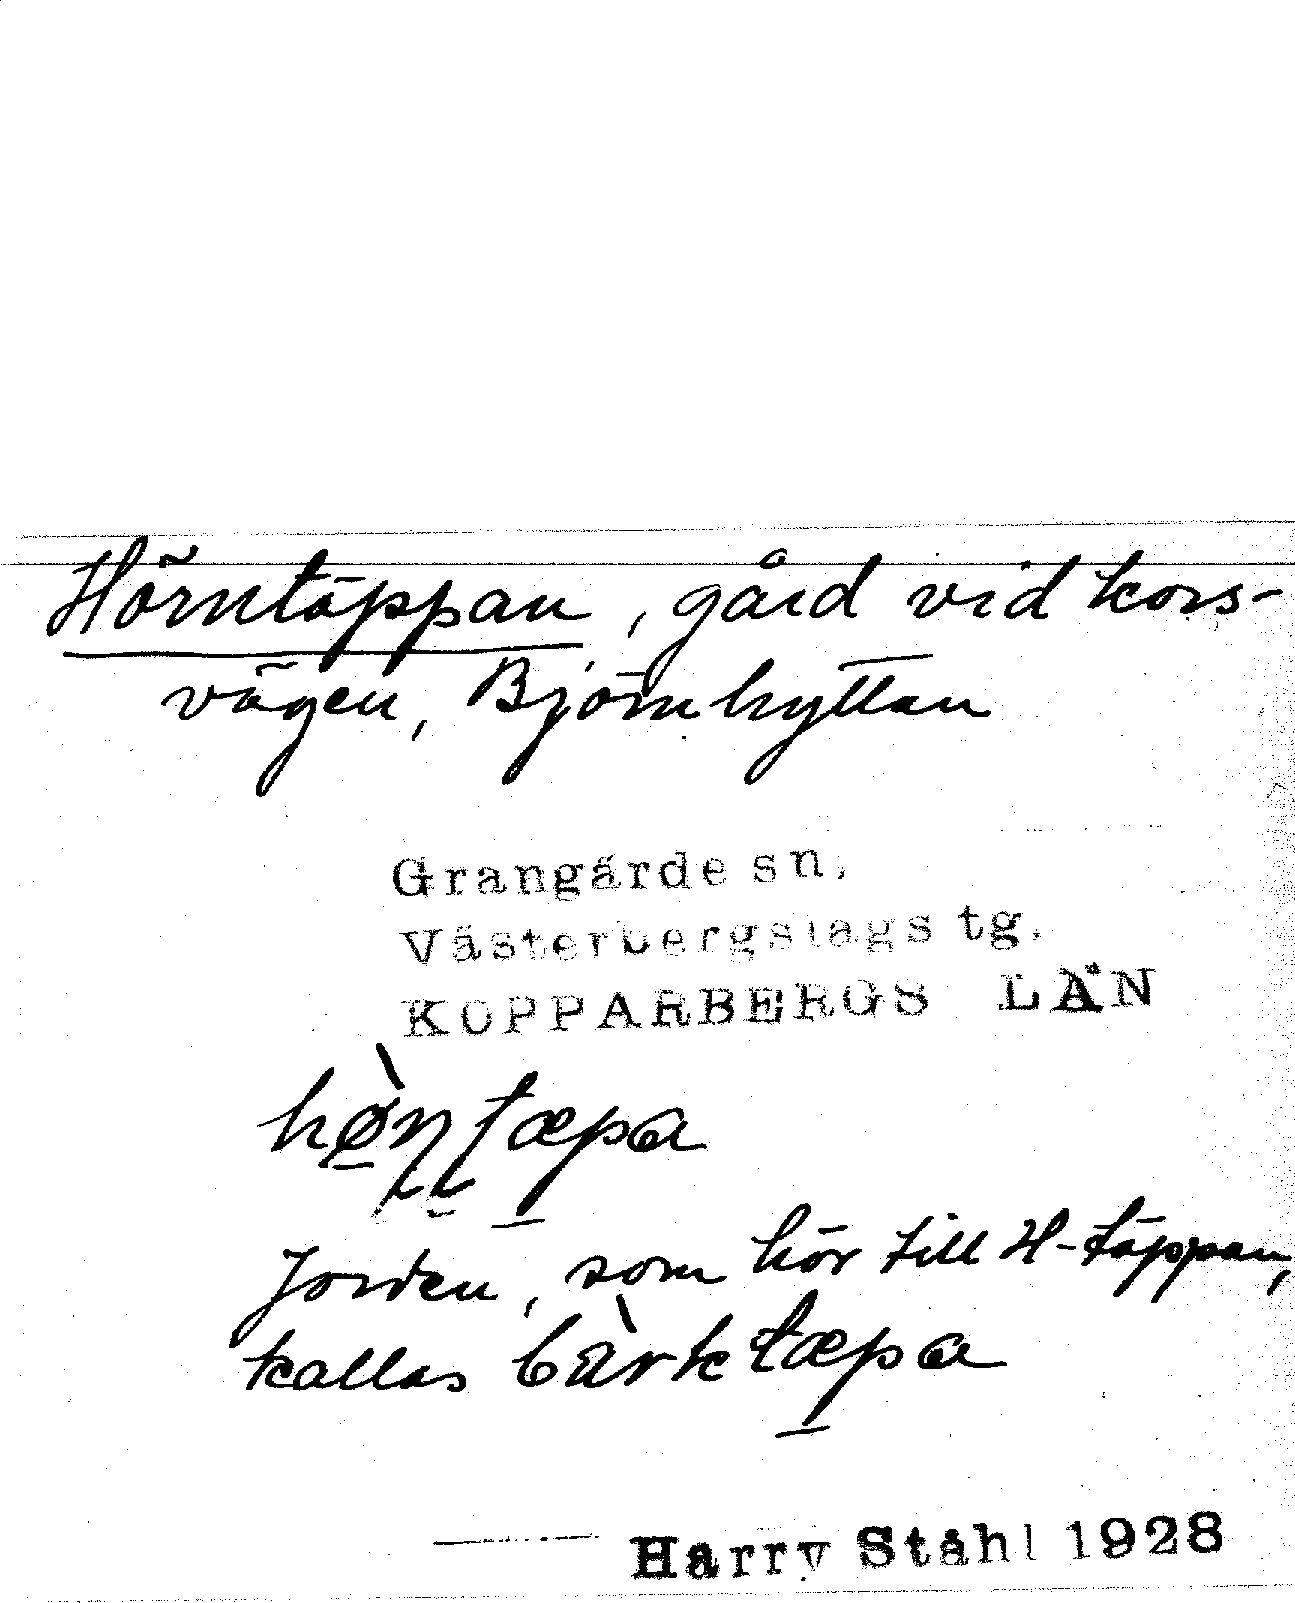 Hörntäppan, gård vid kors-
vägen, Björnhyttan
Grangärde sn.
Västerbergslags tg.
KOPPARBERGS LÄN
hø̀ɳʈæpa
Jorden, som hör till H-täppan,
kallas bàrktæpa
Harry Ståhl 1928